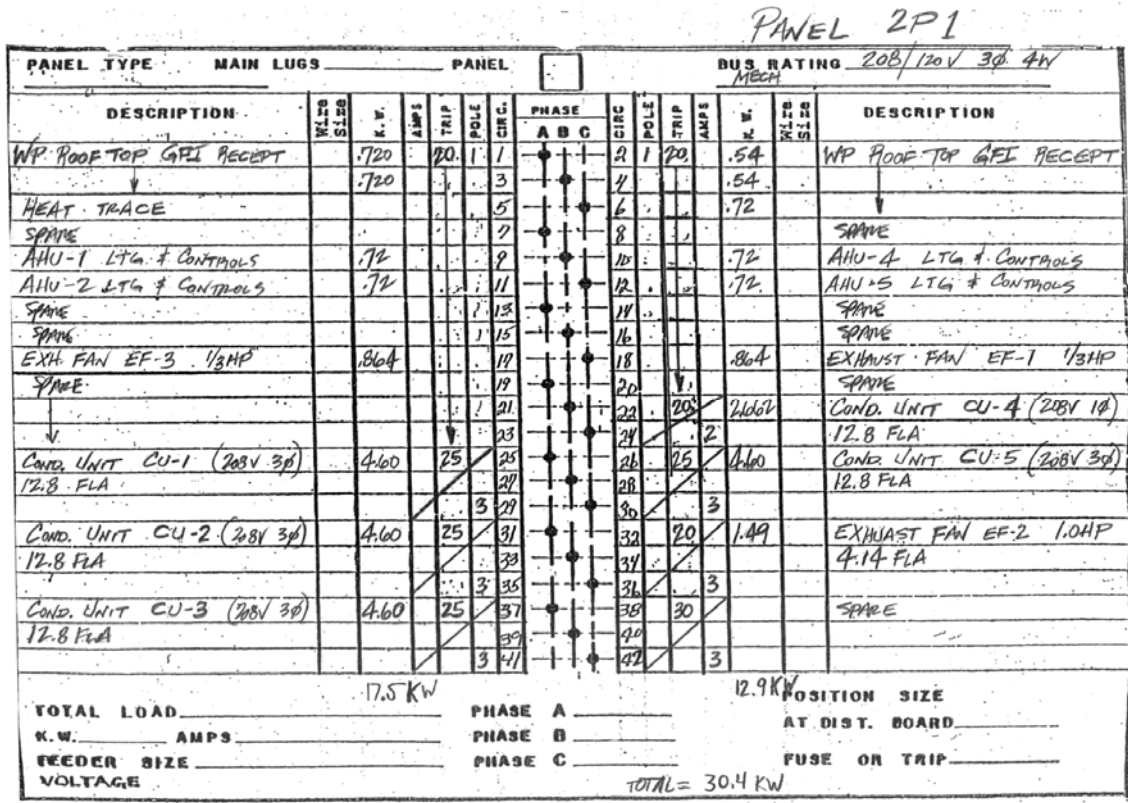 PANEL 2P1
PANEL TYPE MAIN LUGS PANEL BUS RATING 208/120V 3Ø 4W
MECH
DESCRIPTION Wire Size K.W. AMPS TRIP POLE CIRC. PHASE CIRC POLE TRIP AMPS K.W. Wire Size DESCRIPTION
A B C
WP ROOF TOP GFI RECEPT .720 20 1 1 2 1 20 .54 WP ROOF TOP GFI RECEPT
.720 3 4 .54
HEAT TRACE 5 6 .72
SPARE 7 8 SPARE
AHU-1 LTG & CONTROLS .72 9 10 .72 AHU-4 LTG & CONTROLS
AHU-2 LTG & CONTROLS .72 11 12 .72 AHU-5 LTG & CONTROLS
SPARE 13 14 SPARE
SPARE 15 16 SPARE
EXH. FAN EF-3 1/3HP .864 17 18 .864 EXHAUST FAN EF-1 1/3HP
SPARE 19 20 SPARE
21 22 20 2.662 COND. UNIT CU-4 (208V 1Ø)
23 24 2 12.8 FLA
COND. UNIT CU-1 (208V 3Ø) 25 25 26 25 4.60 COND. UNIT CU-5 (208V 3Ø)
4.60
12.8 FLA 27 28 12.8 FLA
3 29 30 3
COND. UNIT CU-2 (208V 3Ø) 4.60 25 31 32 20 1.49 EXHUAST FAN EF-2 1.0HP
12.8 FLA 33 34 4.14 FLA
3 35 36 3
COND. UNIT CU-3 (208V 3Ø) 4.60 25 37 38 30 SPARE
12.8 FLA 39 40
3 41 42 3
17.5 KW 12.9 KW
TOTAL LOAD PHASE A POSITION SIZE
K.W. AMPS PHASE B AT DIST. BOARD
FEEDER SIZE PHASE C FUSE OR TRIP
VOLTAGE TOTAL = 30.4 KW